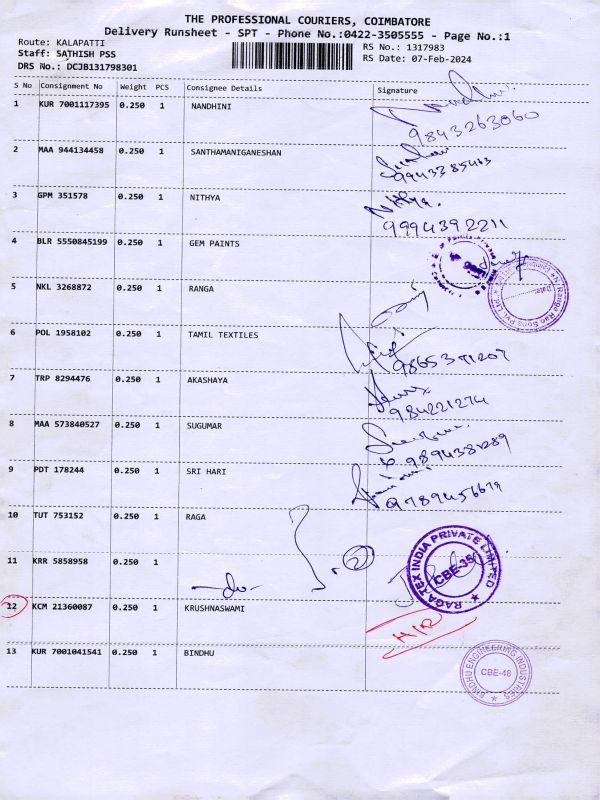 THE PROFESSIONAL COURIERS, COIMBATORE
Delivery Runsheet - SPT - Phone No.:0422-3505555 - Page No.:1
Route: KALAPATTI
Staff: SATHISH PSS
DRS No.: DCJB131798301
RS No.: 1317983
RS Date: 07-Feb-2024
S No Consignment No Weight PCS Consignee Details Signature
1 KUR 7001117395 0.250 1 NANDHINI
9843263060
2 MAA 944134458 0.250 1 SANTHAMANIGANESHAN
9943385463
3 GPM 351578 0.250 1 NITHYA Nithya.
9994392211
4 BLR 5550845199 0.250 1 GEM PAINTS
5 NKL 3268872 0.250 1 RANGA
6 POL 1958102 0.250 1 TAMIL TEXTILES
9865391207
7 TRP 8294476 0.250 1 AKASHAYA
984221274
8 MAA 573840527 0.250 1 SUGUMAR
9 PDT 178244 0.250 1 SRI HARI
9789456679
10 TUT 753152 0.250 1 RAGA
RAGA TEX INDIA PRIVATE LIMITED
CBE-35
11 KRR 5858958 0.250 1 -do-
2
12 KCM 21360087 0.250 1 KRUSHNASWAMI
13 KUR 7001041541 0.250 1 BINDHU
BINDHU ENGINEERING INDUSTRIES
CBE-48